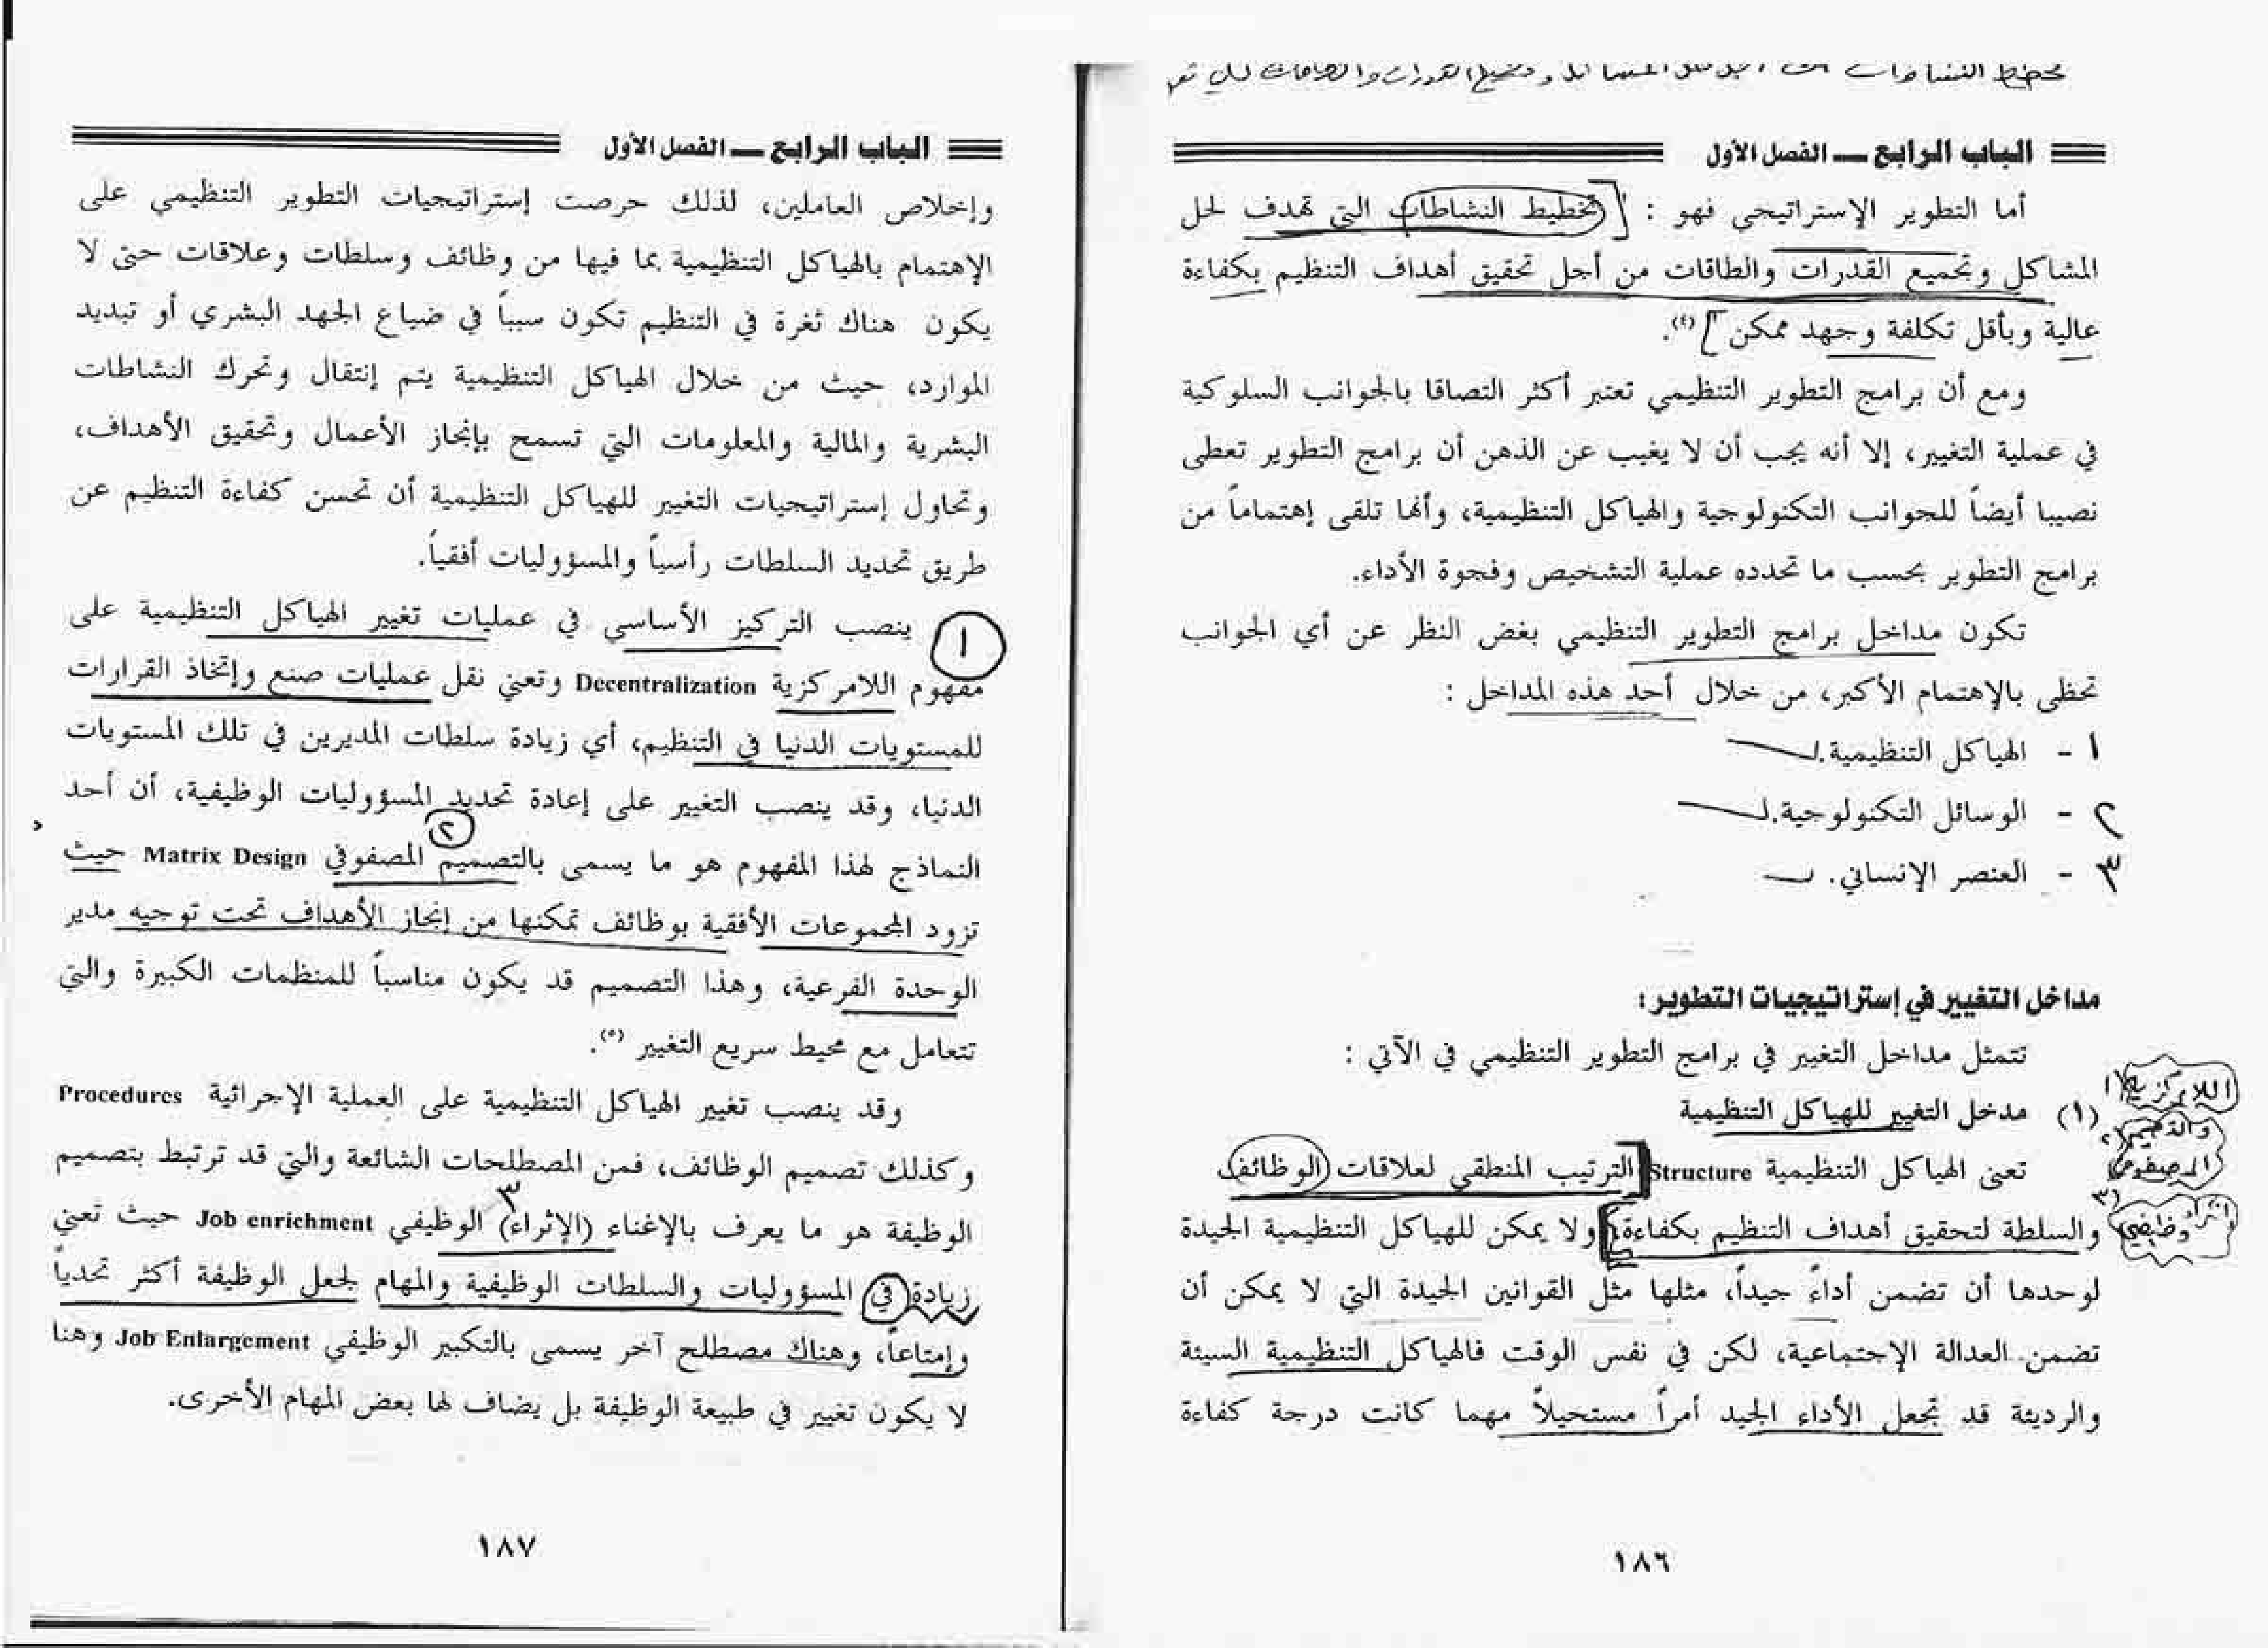 الباب الرابع ــ الفصل الأول
أما التطوير الإستراتيجي فهو : [تخطيط النشاطات التي تهدف لحل
المشاكل وتجميع القدرات والطاقات من أجل تحقيق أهداف التنظيم بكفاءة
عالية وبأقل تكلفة وجهد ممكن] (٤).
ومع أن برامج التطوير التنظيمي تعتبر أكثر التصاقا بالجوانب السلوكية
في عملية التغيير، إلا أنه يجب أن لا يغيب عن الذهن أن برامج التطوير تعطى
نصيبا أيضاً للجوانب التكنولوجية والهياكل التنظيمية، وأنها تلقى إهتماماً من
برامج التطوير بحسب ما تحدده عملية التشخيص وفجوة الأداء.
تكون مداخل برامج التطوير التنظيمي بغض النظر عن أي الجوانب
تحظى بالإهتمام الأكبر، من خلال أحد هذه المداخل :
١ - الهياكل التنظيمية.
٢ - الوسائل التكنولوجية.
٣ - العنصر الإنساني.
مداخل التغيير في إستراتيجيات التطوير:
تتمثل مداخل التغيير في برامج التطوير التنظيمي في الآتي :
(١) مدخل التغيير للهياكل التنظيمية
تعنى الهياكل التنظيمية Structure الترتيب المنطقي لعلاقات الوظائف
والسلطة لتحقيق أهداف التنظيم بكفاءة، ولا يمكن للهياكل التنظيمية الجيدة
لوحدها أن تضمن أداءً جيداً، مثلها مثل القوانين الجيدة التي لا يمكن أن
تضمن العدالة الإجتماعية، لكن في نفس الوقت فالهياكل التنظيمية السيئة
والرديئة قد تجعل الأداء الجيد أمراً مستحيلاً مهما كانت درجة كفاءة
١) اللامركزية
٢) والتصميم
المصفوفي
٣) إثراء
وظيفي
١٨٦
الباب الرابع ــ الفصل الأول
وإخلاص العاملين، لذلك حرصت إستراتيجيات التطوير التنظيمي على
الإهتمام بالهياكل التنظيمية بما فيها من وظائف وسلطات وعلاقات حتى لا
يكون هناك ثغرة في التنظيم تكون سبباً في ضياع الجهد البشري أو تبديد
الموارد، حيث من خلال الهياكل التنظيمية يتم إنتقال وتحرك النشاطات
البشرية والمالية والمعلومات التي تسمح بإنجاز الأعمال وتحقيق الأهداف،
وتحاول إستراتيجيات التغيير للهياكل التنظيمية أن تحسن كفاءة التنظيم عن
طريق تحديد السلطات رأسياً والمسؤوليات أفقياً.
١ ينصب التركيز الأساسي في عمليات تغيير الهياكل التنظيمية على
مفهوم اللامركزية Decentralization وتعني نقل عمليات صنع وإتخاذ القرارات
للمستويات الدنيا في التنظيم، أي زيادة سلطات المديرين في تلك المستويات
الدنيا، وقد ينصب التغيير على إعادة تحديد المسؤوليات الوظيفية، أن أحد
٢
النماذج لهذا المفهوم هو ما يسمى بالتصميم المصفوفي Matrix Design حيث
تزود المجموعات الأفقية بوظائف تمكنها من إنجاز الأهداف تحت توجيه مدير
الوحدة الفرعية، وهذا التصميم قد يكون مناسباً للمنظمات الكبيرة والتي
تتعامل مع محيط سريع التغيير (٥).
وقد ينصب تغيير الهياكل التنظيمية على العملية الإجرائية Procedures
وكذلك تصميم الوظائف، فمن المصطلحات الشائعة والتي قد ترتبط بتصميم
٣
الوظيفة هو ما يعرف بالإغناء (الإثراء) الوظيفي Job enrichment حيث تعني
زيادة في المسؤوليات والسلطات الوظيفية والمهام لجعل الوظيفة أكثر تحدياً
وإمتاعاً، وهناك مصطلح آخر يسمى بالتكبير الوظيفي Job Enlargement وهنا
لا يكون تغيير في طبيعة الوظيفة بل يضاف لها بعض المهام الأخرى.
١٨٧